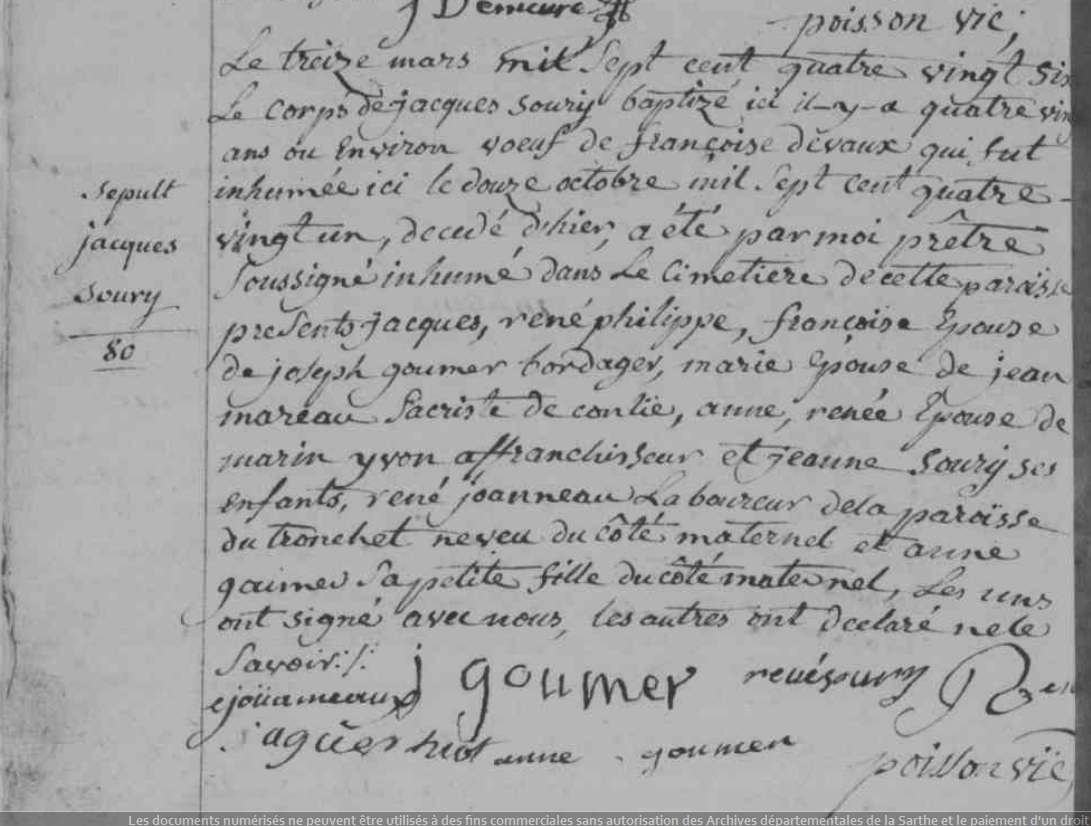 Demeure
poisson vic;
Le treize mars mil Sept cent quatre vingt Six
Le corps de jacques Soury baptizé ici il-y-a quatre vin
ans ou Environ voeuf de françoise devaux qui fut
inhumée ici le douze octobre mil Sept cent quatre-
vingt un, decedé d'hier, a été par moi prêtre
Soussigné inhumé dans Le Cimetiere de cette paroisse
presents jacques, rené philippe, françoise Epouse
de joseph goumer bordager, marie Epouse de jean
mareau Sacriste de conlie, anne, renée Epouse de
marin yvon affranchisseur et jeanne Soury ses
enfants, rené joanneau Laboureur de la paroisse
du tronchet neveu du côté maternel et anne
gaimer Sa petite fille du côté maternel, Les uns
ont signé avec nous, les autres ont declaré ne le
Savoir./.
Sepult
jacques
Soury
80
j goumer
rené soury
anne goumer
poisson vic
Les documents numérisés ne peuvent être utilisés à des fins commerciales sans autorisation des Archives départementales de la Sarthe et le paiement d'un droit